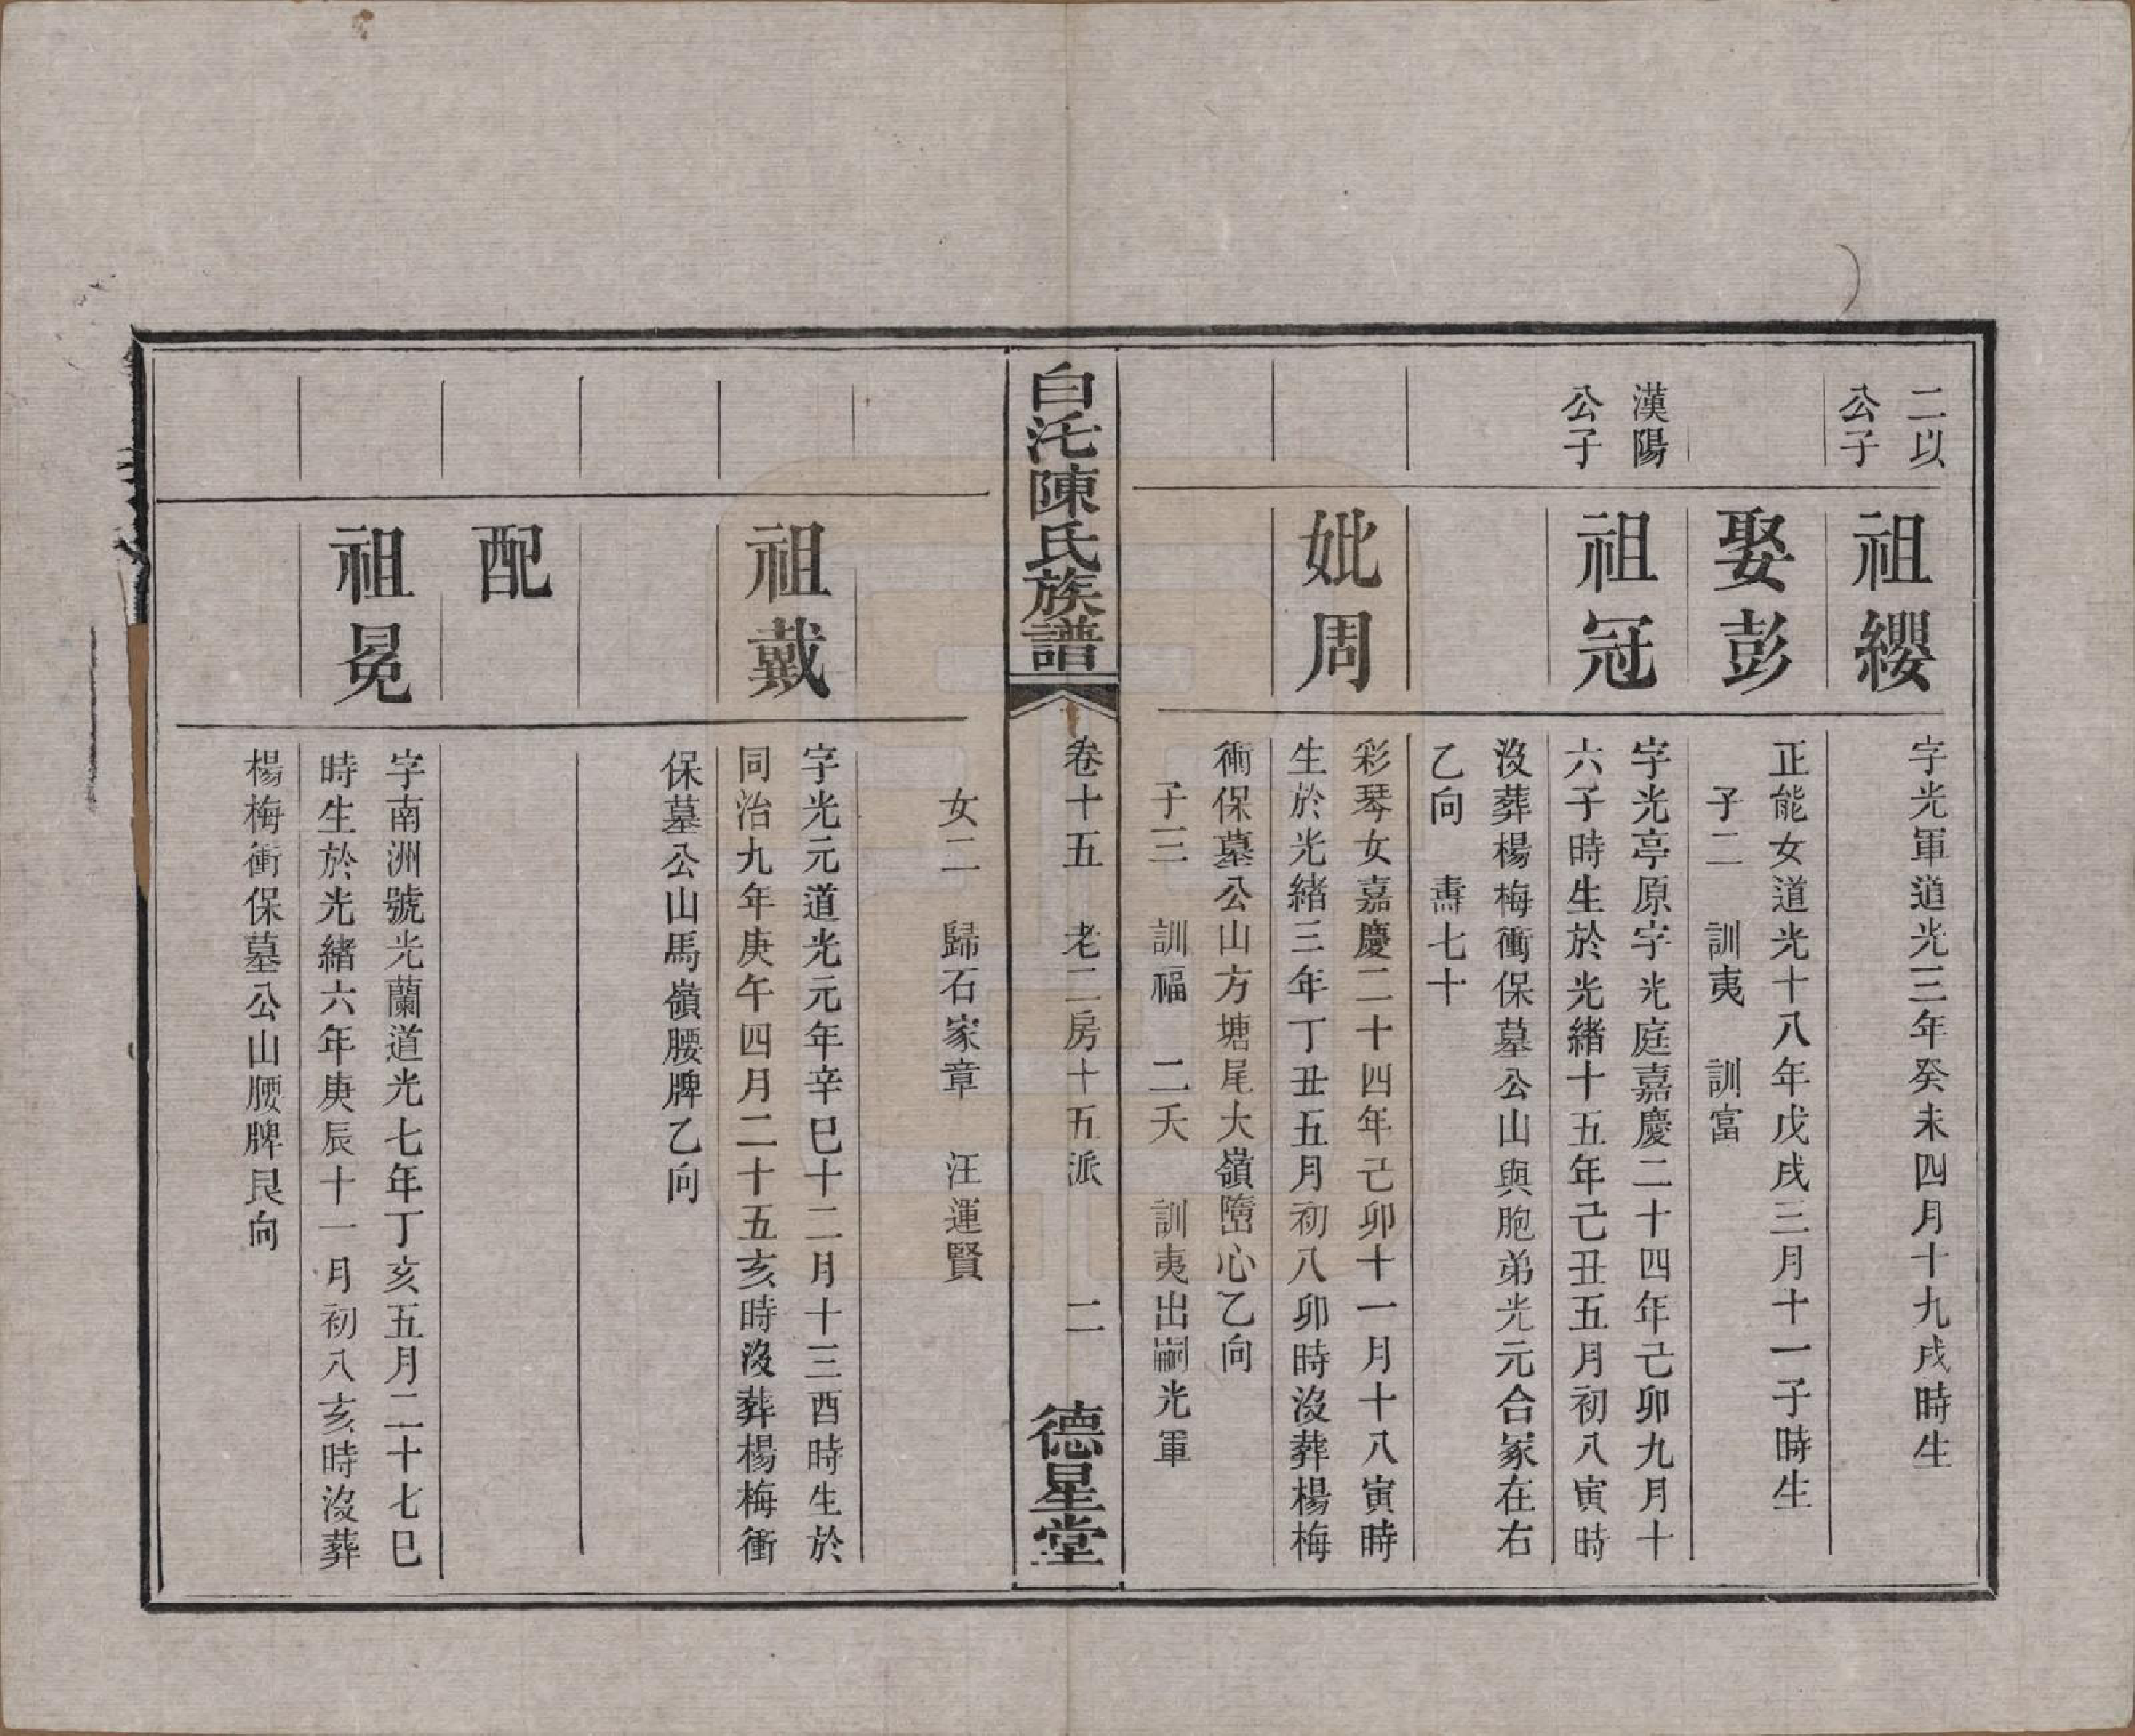 二以
公子
祖纓
字光軍道光三年癸未四月十九戌時生
娶彭
正能女道光十八年戊戌三月十一子時生
子二　訓夷　訓富
漢陽
公子
祖冠
字光亭原字光庭嘉慶二十四年己卯九月十
六子時生於光緒十五年己丑五月初八寅時
沒葬楊梅衝保墓公山與胞弟光元合冢在右
乙向　壽七十
妣周
彩琴女嘉慶二十四年己卯十一月十八寅時
生於光緒三年丁丑五月初八卯時沒葬楊梅
衝保墓公山方塘尾大嶺墮心乙向
子三　訓福　二夭　訓夷出嗣光軍
白沱陳氏族譜
卷十五　老二房十五派　二
德星堂
女二　歸石家章　汪運賢
祖戴
字光元道光元年辛巳十二月十三酉時生於
同治九年庚午四月二十五亥時沒葬楊梅衝
保墓公山馬嶺腰牌乙向
配
祖冕
字南洲號光蘭道光七年丁亥五月二十七巳
時生於光緒六年庚辰十一月初八亥時沒葬
楊梅衝保墓公山腰牌艮向